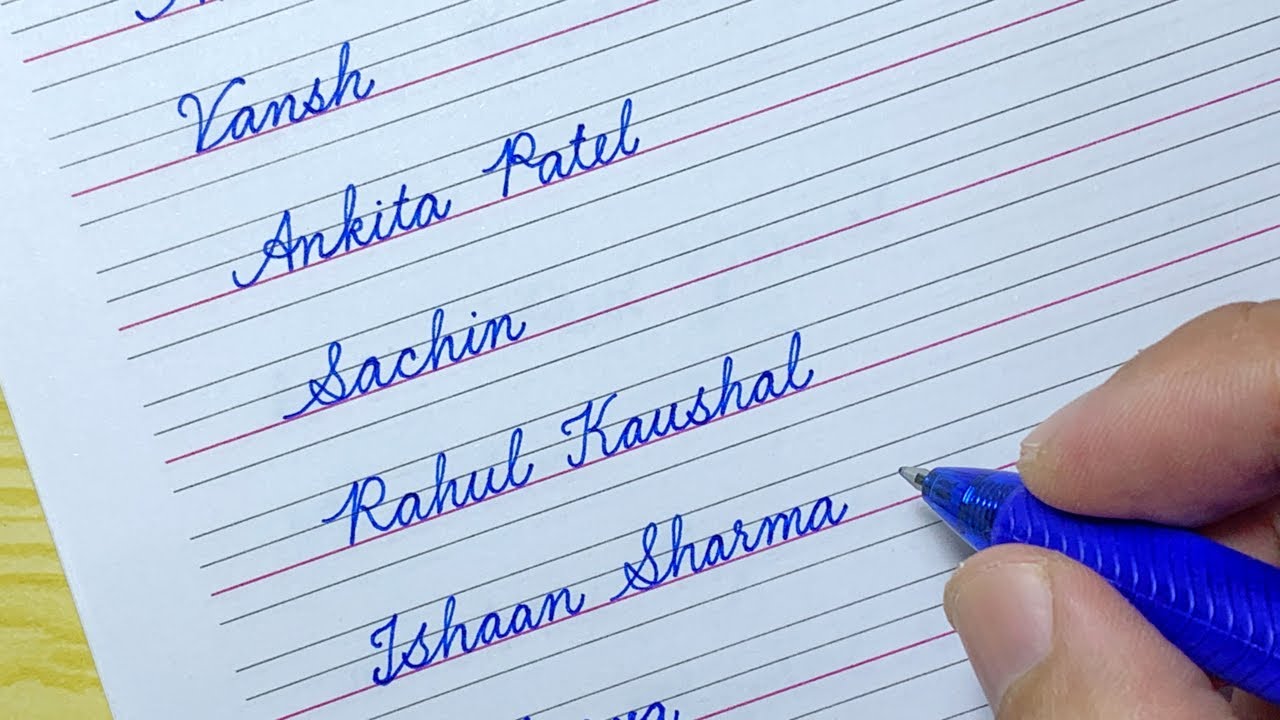 Vansh
Ankita Patel
Sachin
Rahul Kaushal
Ishaan Sharma